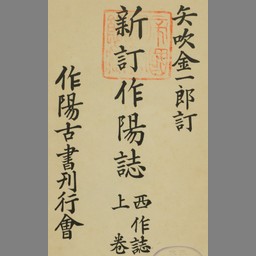 矢吹金一郎訂
新訂作陽誌
西作誌
上卷
作陽古書刊行會